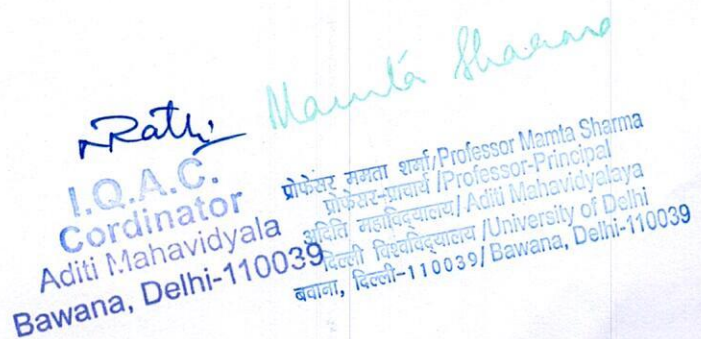 Rathi
Mamta Sharma
I.Q.A.C.
Cordinator
Aditi Mahavidyala
Bawana, Delhi-110039
प्रोफेसर ममता शर्मा/Professor Mamta Sharma
प्रोफेसर-प्राचार्य /Professor-Principal
अदिति महाविद्यालय/ Aditi Mahavidyalaya
दिल्ली विश्वविद्यालय /University of Delhi
बवाना, दिल्ली-110039/ Bawana, Delhi-110039